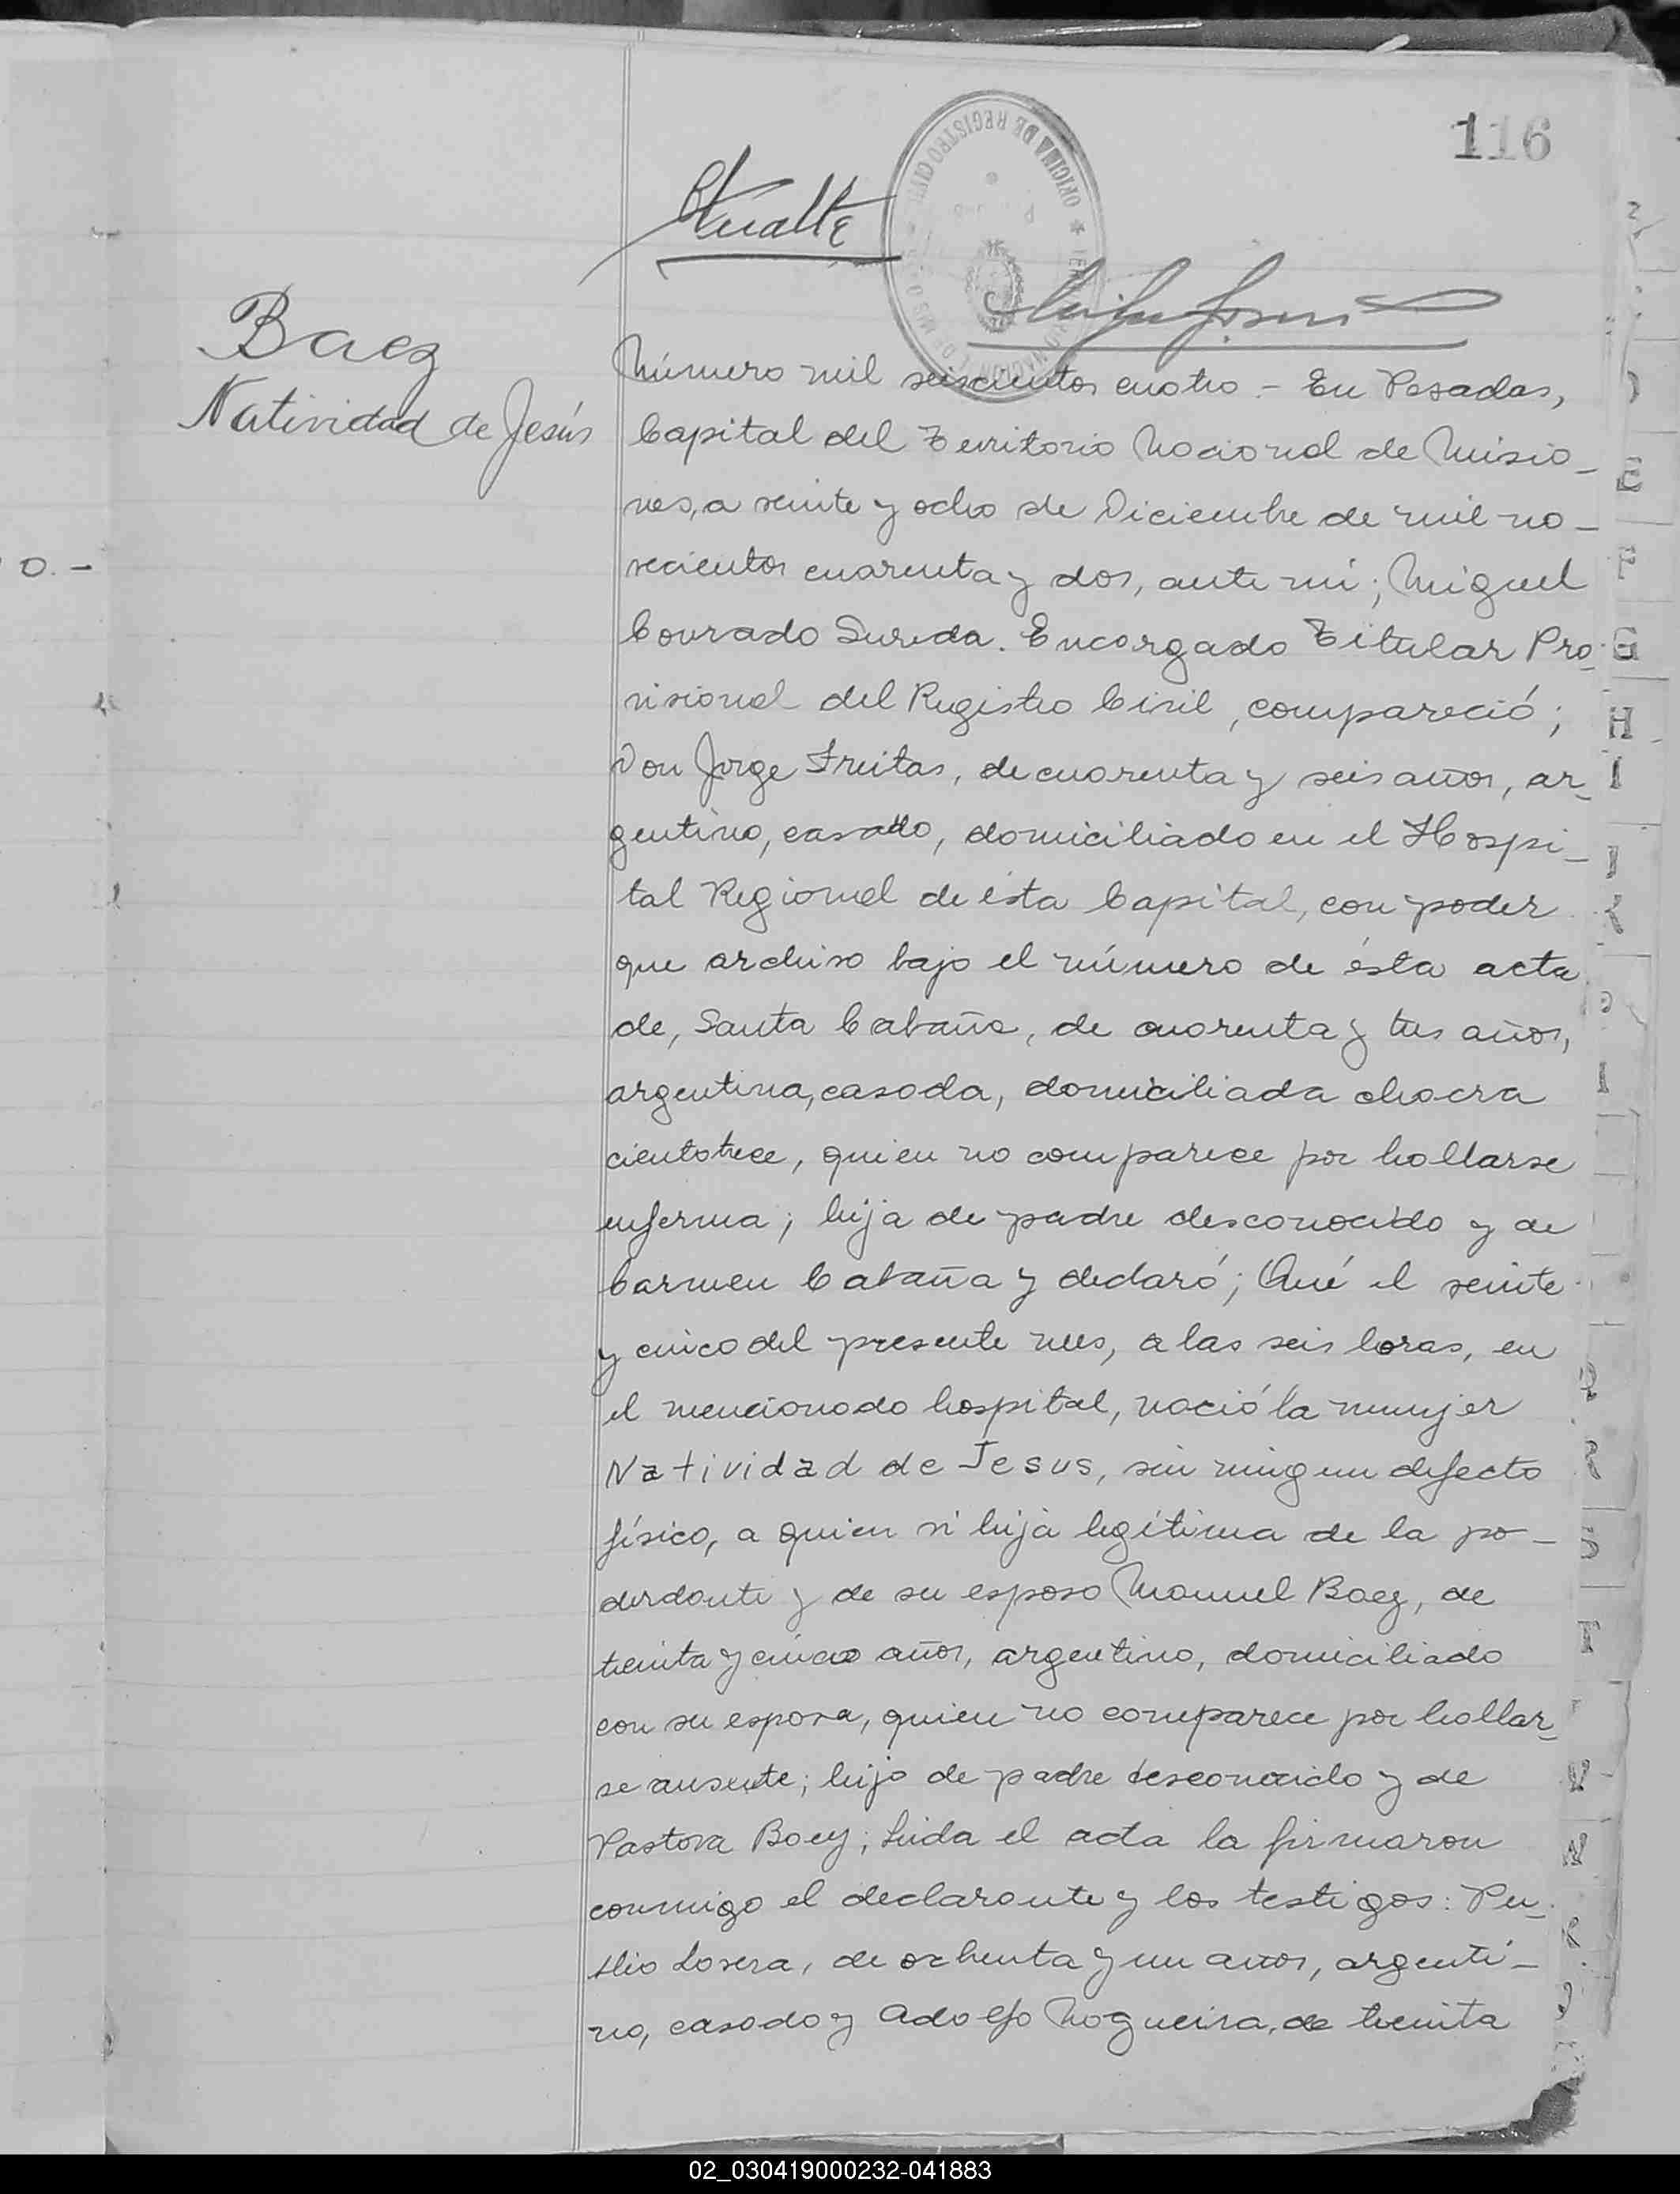 116
OFICINA DE REGISTRO CIVIL
Baez
Natividad de Jesús
Número mil seiscientos cuatro - En Posadas,
Capital del Territorio Nacional de Misio-
nes, a veinte y ocho de Diciembre de mil no-
vecientos cuarenta y dos, ante mí; Miguel
Conrado Sureda. Encargado Titular Pro-
visional del Registro Civil, compareció;
Don Jorge Freitas, de cuarenta y seis años, ar-
gentino, casado, domiciliado en el Hospi-
tal Regional de ésta Capital, con poder
que archivo bajo el número de ésta acta
de, Santa Cabaña, de cuarenta y tres años,
argentina, casada, domiciliada chacra
cientotrece, quien no comparece por hallarse
enferma; hija de padre desconocido y de
Carmen Cabaña y declaró; Qué el veinte
y cinco del presente mes, a las seis horas, en
el mencionado hospital, nació la mujer
Natividad de Jesus, sin ningun defecto
físico, a quien vi hija legítima de la po-
derdante y de su esposo Manuel Baez, de
treinta y cinco años, argentino, domiciliado
con su esposa, quien no comparece por hallar-
se ausente; hijo de padre desconocido y de
Pastora Baez; Leida el acta la firmaron
conmigo el declarante y los testigos:
de ochenta y un años, argenti-
no, casado y Adolfo Nogueira, de treinta
0.-
02_030419000232-041883